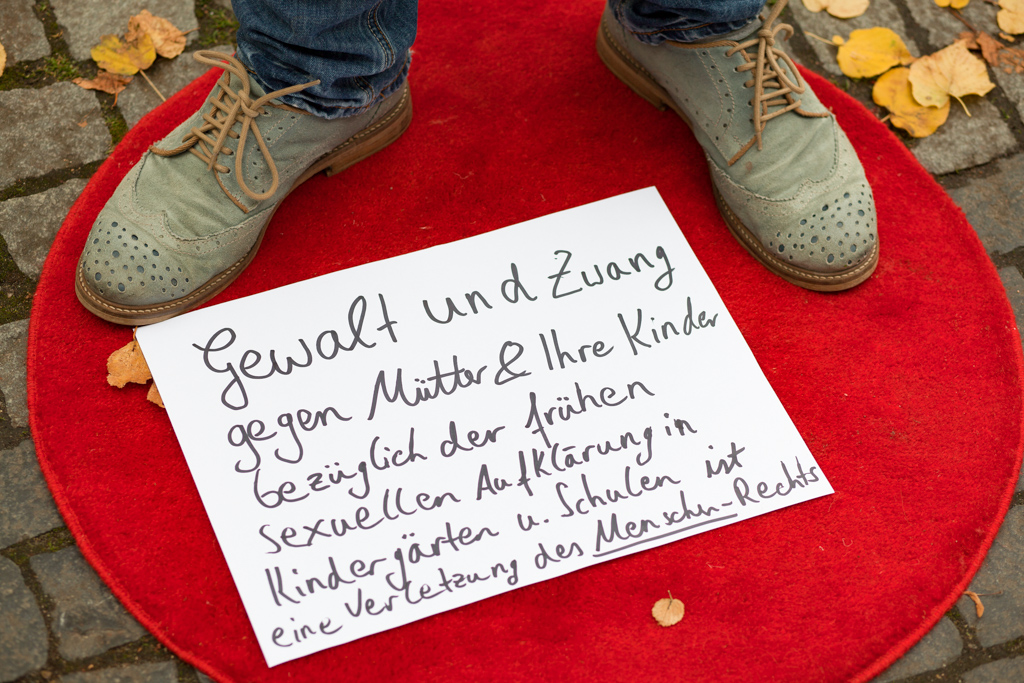 Gewalt und Zwang
gegen Mütter & Ihre Kinder
bezüglich der frühen
sexuellen Aufklärung in
Kindergärten u. Schulen ist
eine Verletzung des Menschen-Rechts